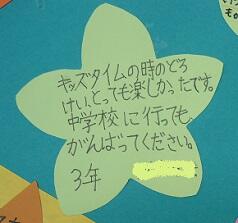 キッズタイムの時のどろ
けい、とっても楽しかったです。
中学校に行っても
がんばってください。
3年